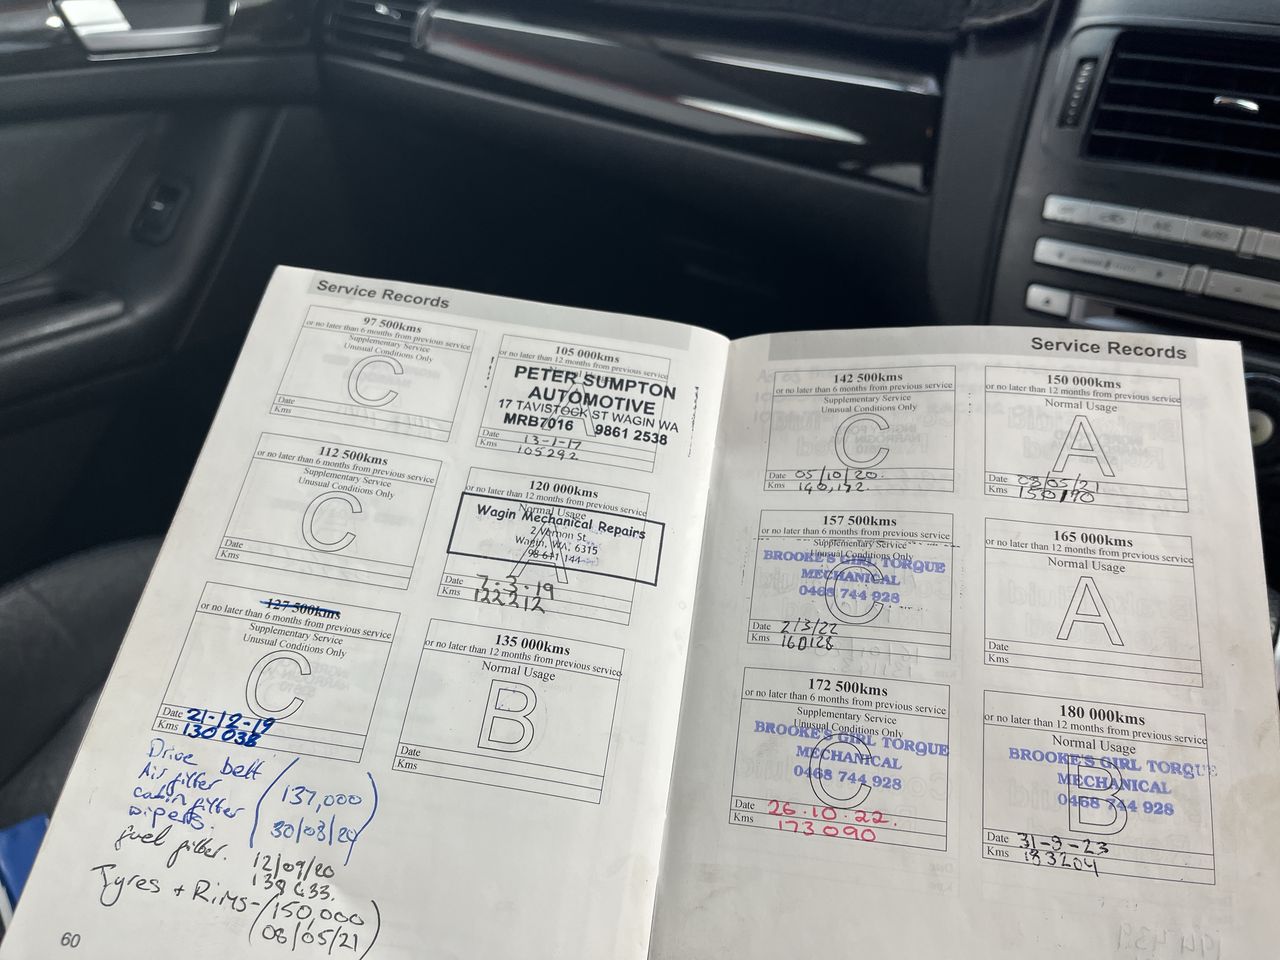 Service Records
97 500kms
or no later than 6 months from previous service
Supplementary Service
Unusual Conditions Only
C
Date
Kms
105 000kms
or no later than 12 months from previous service
PETER SUMPTON
AUTOMOTIVE
17 TAVISTOCK ST WAGIN WA
MRB7016 9861 2538
Date 13-1-17
Kms 105292
112 500kms
or no later than 6 months from previous service
Supplementary Service
Unusual Conditions Only
C
Date
Kms
120 000kms
or no later than 12 months from previous service
Normal Usage
A
Wagin Mechanical Repairs
2 Vernon St
Wagin, WA, 6315
Date 7-3-19
Kms 122212
127 500kms
or no later than 6 months from previous service
Supplementary Service
Unusual Conditions Only
C
Date 21-12-19
Kms 130 038
135 000kms
or no later than 12 months from previous service
Normal Usage
B
Date
Kms
Drive belt
Air filter
cabin filter
wipers.
(137,000
30/08/20)
fuel filter.
12/09/20
138 433.
Tyres + Rims - (150,000
08/05/21)
60
Service Records
142 500kms
or no later than 6 months from previous service
Supplementary Service
Unusual Conditions Only
C
Date 05/10/20.
Kms 140,172.
150 000kms
or no later than 12 months from previous service
Normal Usage
A
Date 08/05/21
Kms 150,170
157 500kms
or no later than 6 months from previous service
Supplementary Service
Unusual Conditions Only
C
BROOKE'S GIRL TORQUE
MECHANICAL
0468 744 928
Date 2/3/22
Kms 160128
165 000kms
or no later than 12 months from previous service
Normal Usage
A
Date
Kms
172 500kms
or no later than 6 months from previous service
Supplementary Service
Unusual Conditions Only
C
BROOKE'S GIRL TORQUE
MECHANICAL
0468 744 928
Date 26.10.22.
Kms 173090
180 000kms
or no later than 12 months from previous service
Normal Usage
B
BROOKE'S GIRL TORQUE
MECHANICAL
0468 744 928
Date 31-8-23
Kms 183204